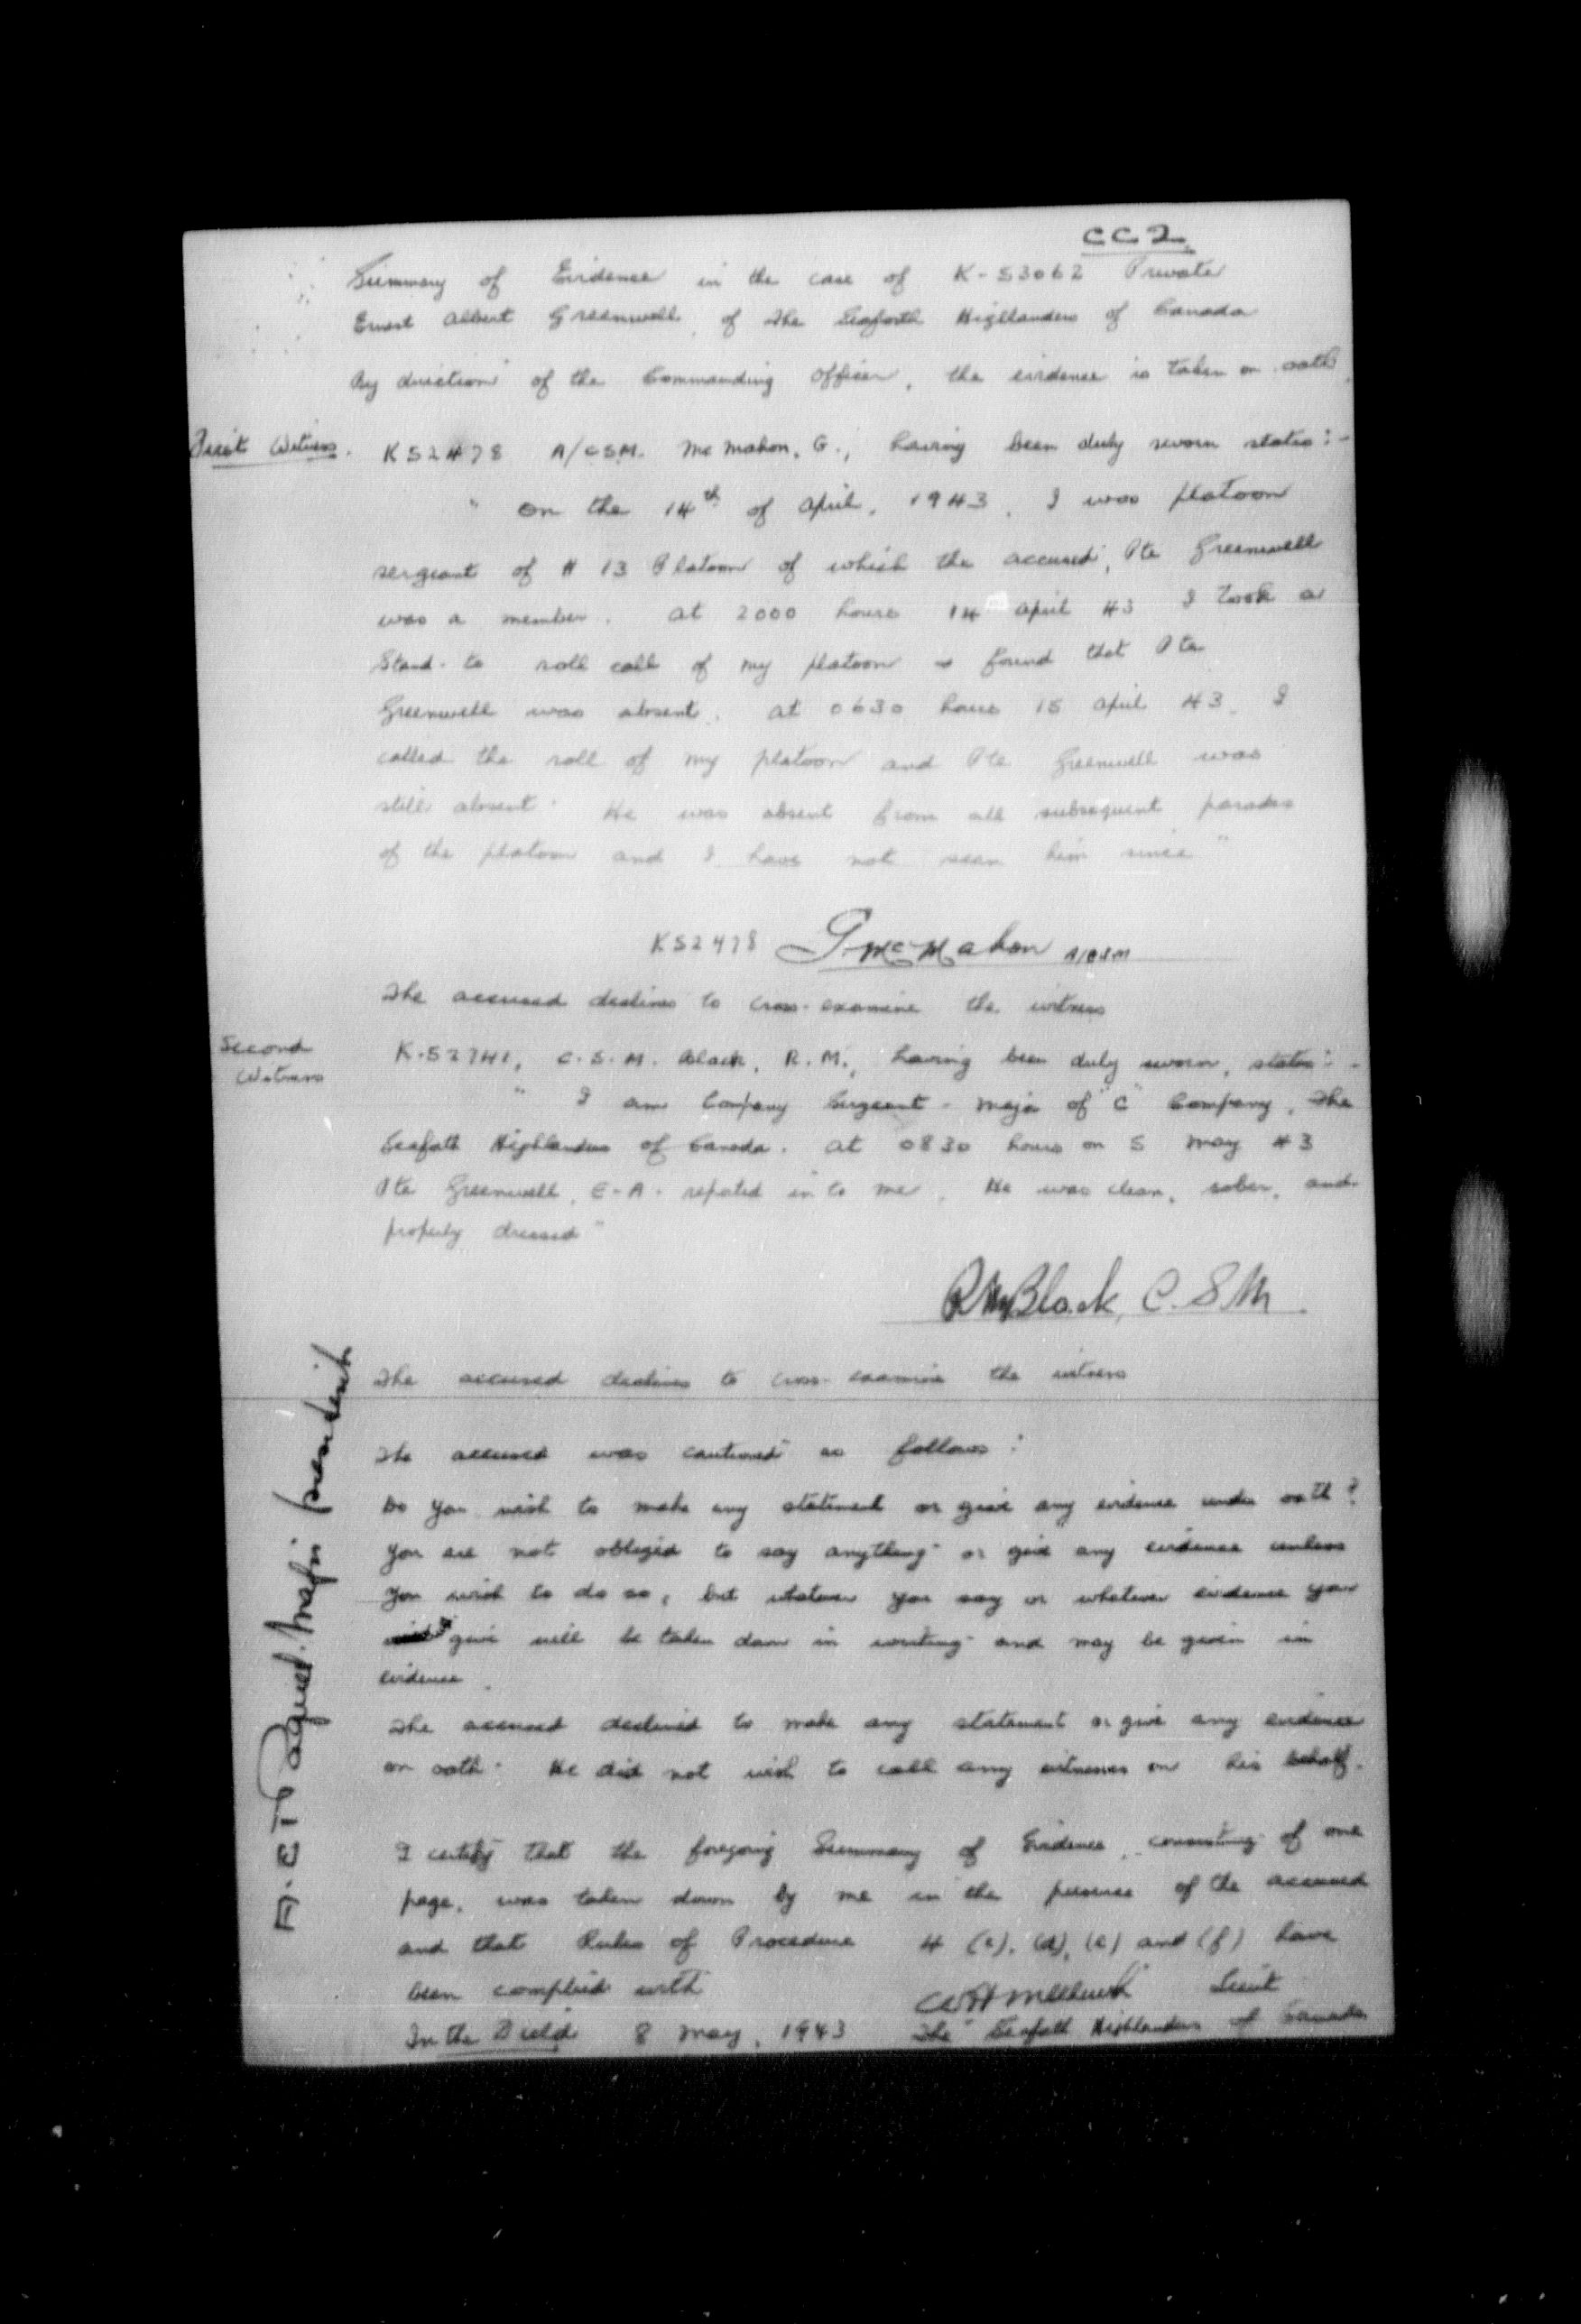 CC2
Summary of Evidence in the case of K-53062 Private
Ernest Albert Greenwell of The Seaforth Highlanders of Canada
By direction of the Commanding Officer, the evidence is taken on oath
First Witness. K52478 A/CSM. McMahon, G., having been duly sworn states:-
" On the 14th of April, 1943, I was platoon
sergeant of # 13 Platoon of which the accused, Pte Greenwell
was a member. At 2000 hours 14 April 43 I took a
Stand-to roll call of my platoon & found that Pte
Greenwell was absent. At 0630 hours 15 April 43 I
called the roll of my platoon and Pte Greenwell was
still absent. He was absent from all subsequent parades
of the platoon and I have not seen him since"
K52478 G. McMahon A/CSM
The accused declines to cross-examine the witness
Second Witness
K-52741, C.S.M. Black, R.M., having been duly sworn, states:-
" I am Company Sergeant-Major of "C" Company, The
Seaforth Highlanders of Canada. At 0830 hours on 5 May 43
Pte Greenwell, E.A. reported in to me. He was clean, sober, and
properly dressed"
RM Black, C.S.M.
The accused declines to cross-examine the witness
The accused was cautioned as follows:
Do you wish to make any statement or give any evidence under oath?
You are not obliged to say anything or give any evidence unless
you wish to do so, but whatever you say or whatever evidence you
give will be taken down in writing and may be given in
evidence.
The accused declined to make any statement or give any evidence
on oath. He did not wish to call any witnesses on his behalf.
I certify that the foregoing Summary of Evidence, consisting of one
page, was taken down by me in the presence of the accused
and that Rules of Procedure 4 (c), (d), (e) and (f) have
been complied with
Lieut
In the Field 8 May, 1943 The Seaforth Highlanders of Canada
Paquet Major president